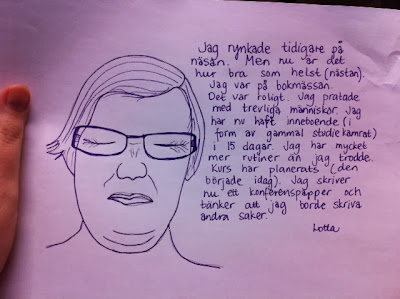 Jag rynkade tidigare på
näsan. Men nu är det
hur bra som helst (nästan).
Jag var på bokmässan.
Det var roligt. Jag pratade
med trevliga människor. Jag
har nu haft inneboende (i
form av gammal studiekamrat)
i 15 dagar. Jag har mycket
mer rutiner än jag trodde.
Kurs har planerats (den
började idag). Jag skriver
nu ett konferenspapper och
tänker att jag borde skriva
andra saker.
Lotta